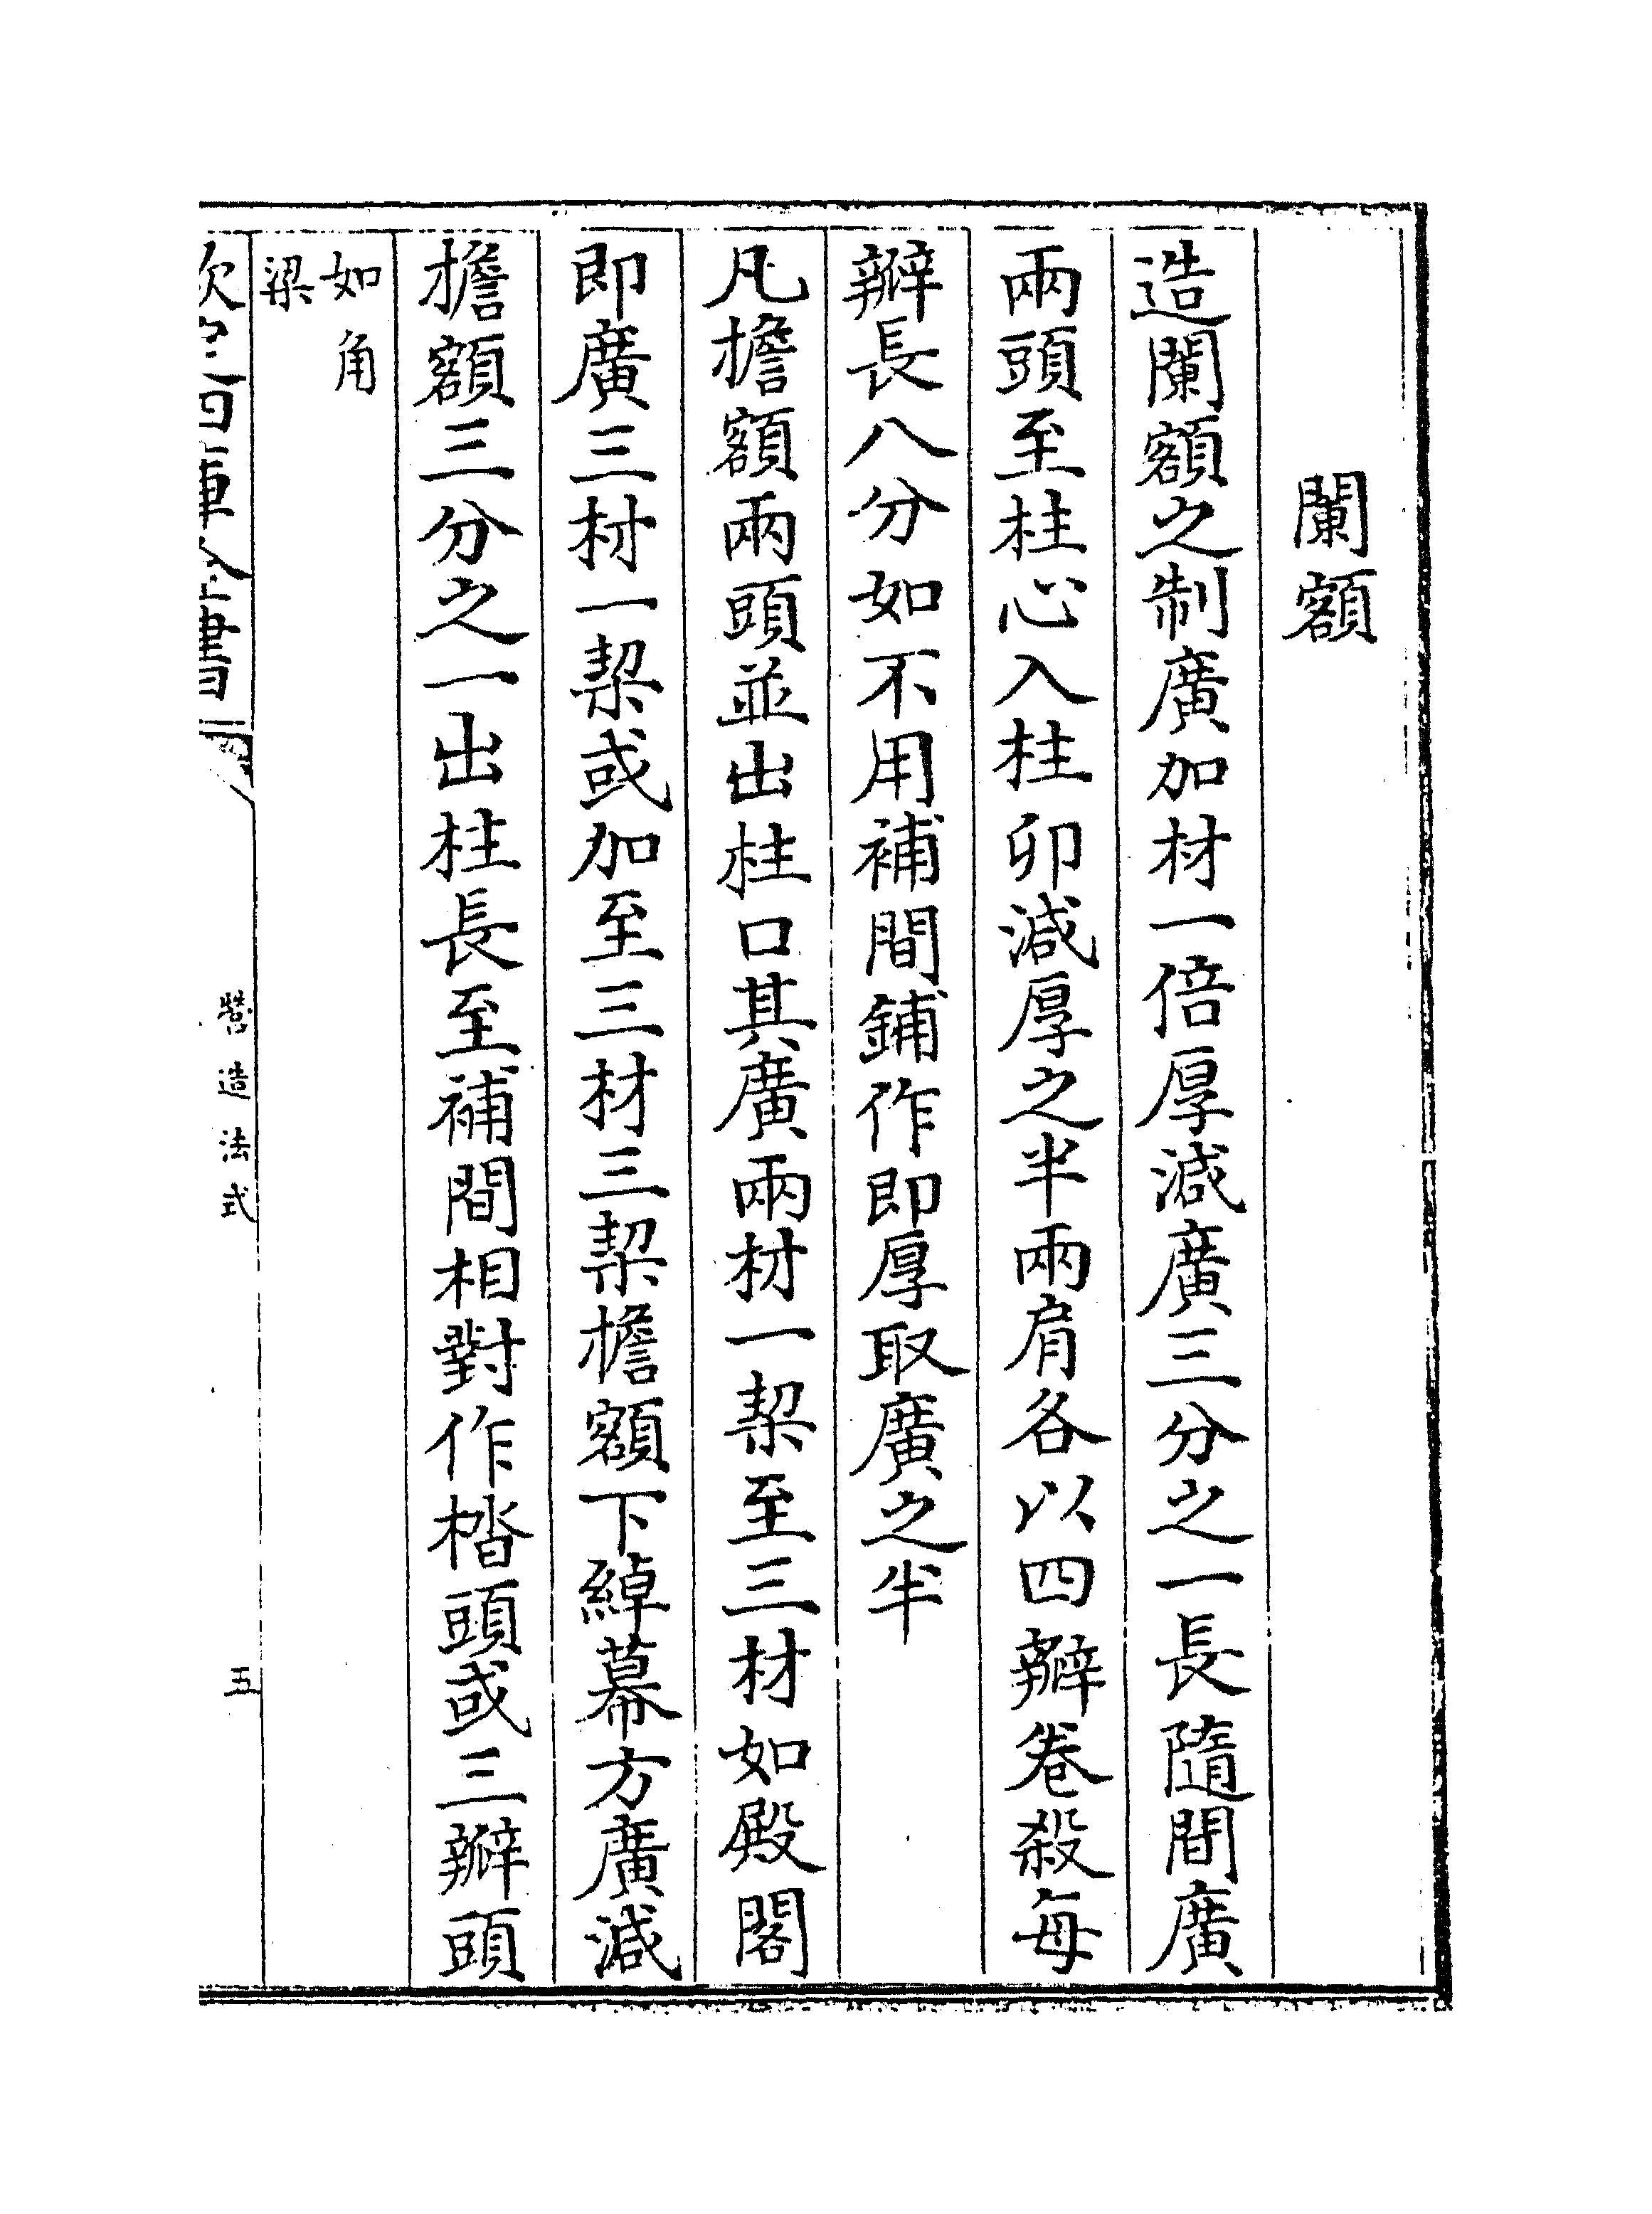 闌額
造闌額之制廣加材一倍厚減廣三分之一長隨間廣
兩頭至柱心入柱卯減厚之半兩肩各以四瓣卷殺每
瓣長八分如不用補間鋪作即厚取廣之半
凡檐額兩頭並出柱口其廣兩材一栔至三材如殿閣
即廣三材一栔或加至三材三栔檐額下綽幕方廣減
檐額三分之一出柱長至補間相對作楷頭或三瓣頭
如角
梁
欽定四庫全書
營造法式
五